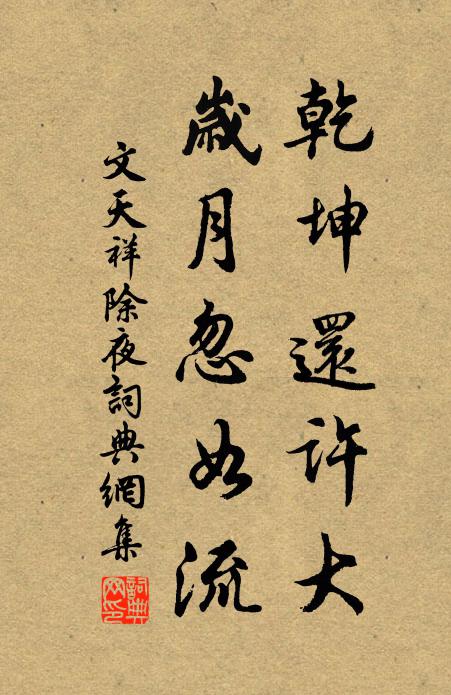 乾坤還許大
歲月忽如流
文天祥除夜詞典網集
詞典網印